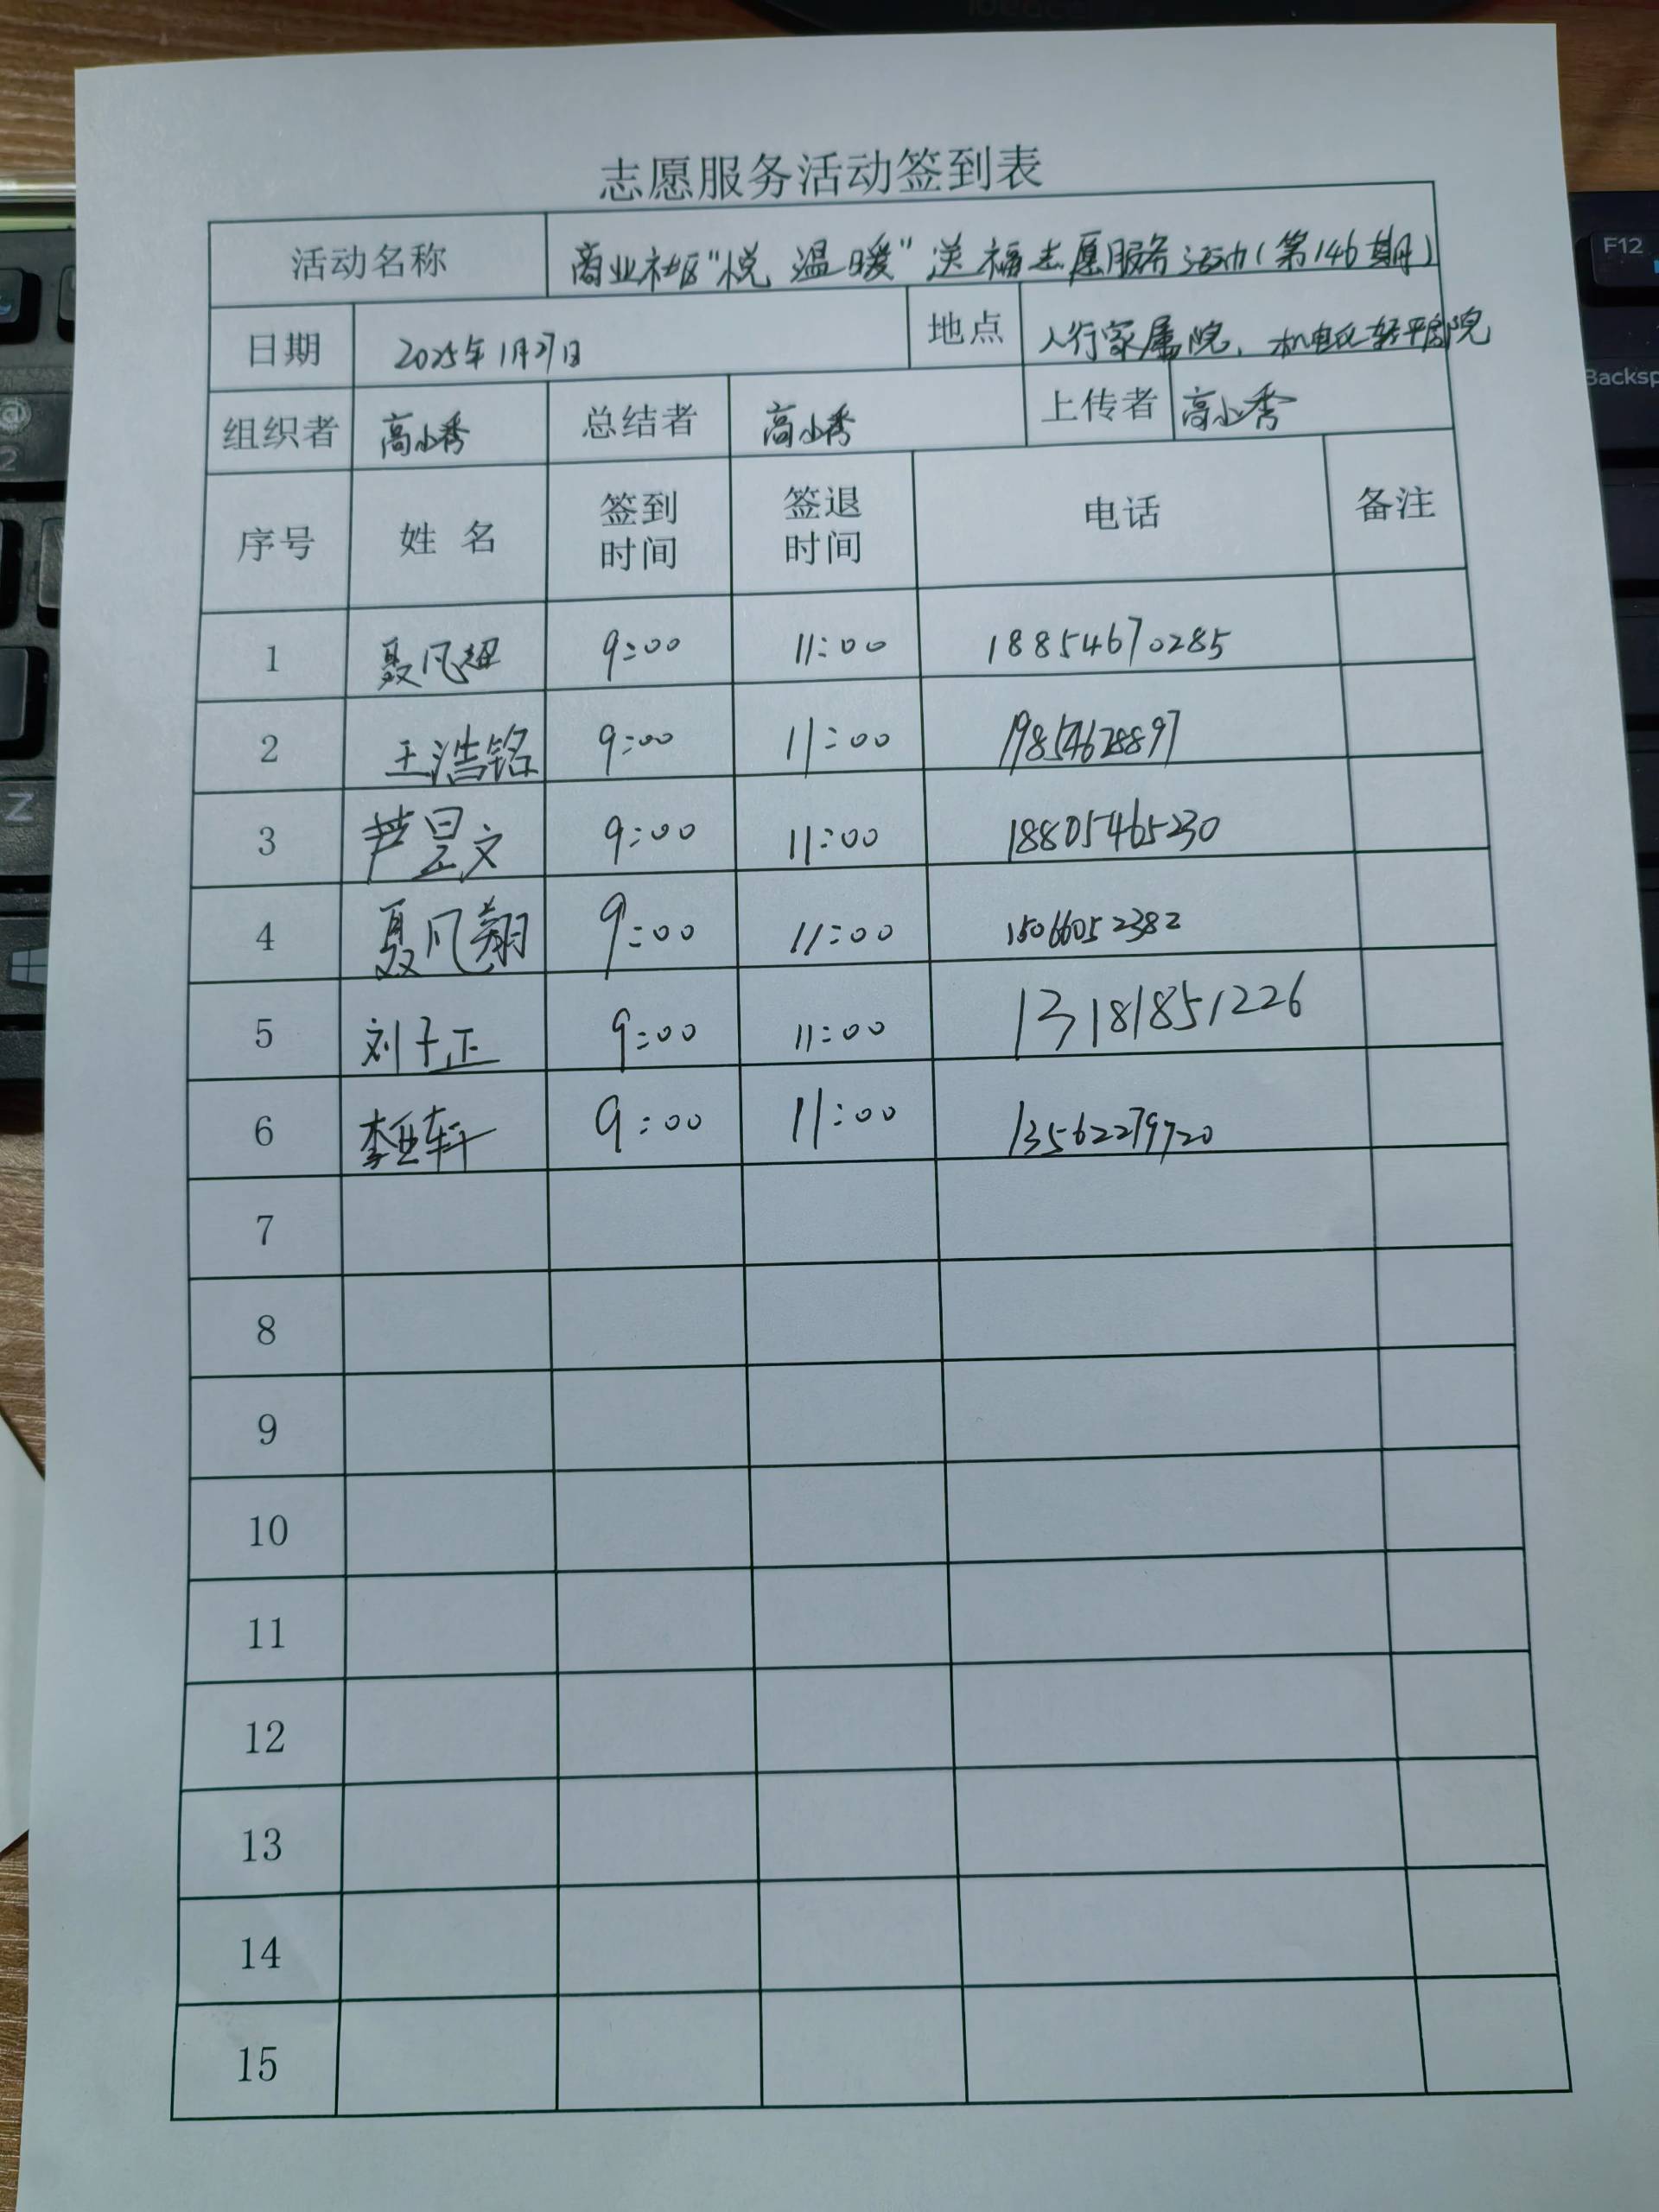 志愿服务活动签到表
活动名称 商业社区"悦 温暖"送福志愿服务活动(第146期)
日期 2025年1月27日 地点 人行家属院、机电公轻平房院
组织者 高小秀 总结者 高小秀 上传者 高小秀
序号 姓名 签到时间 签退时间 电话 备注
1 聂凡超 9:00 11:00 18854670285
2 王浩铭 9:00 11:00 19854628897
3 芦昱文 9:00 11:00 18805465230
4 聂凡翔 9:00 11:00 15066052382
5 刘子正 9:00 11:00 13181851226
6 李亚轩 9:00 11:00 13562279720
7
8
9
10
11
12
13
14
15
F12
Backsp
Z
2